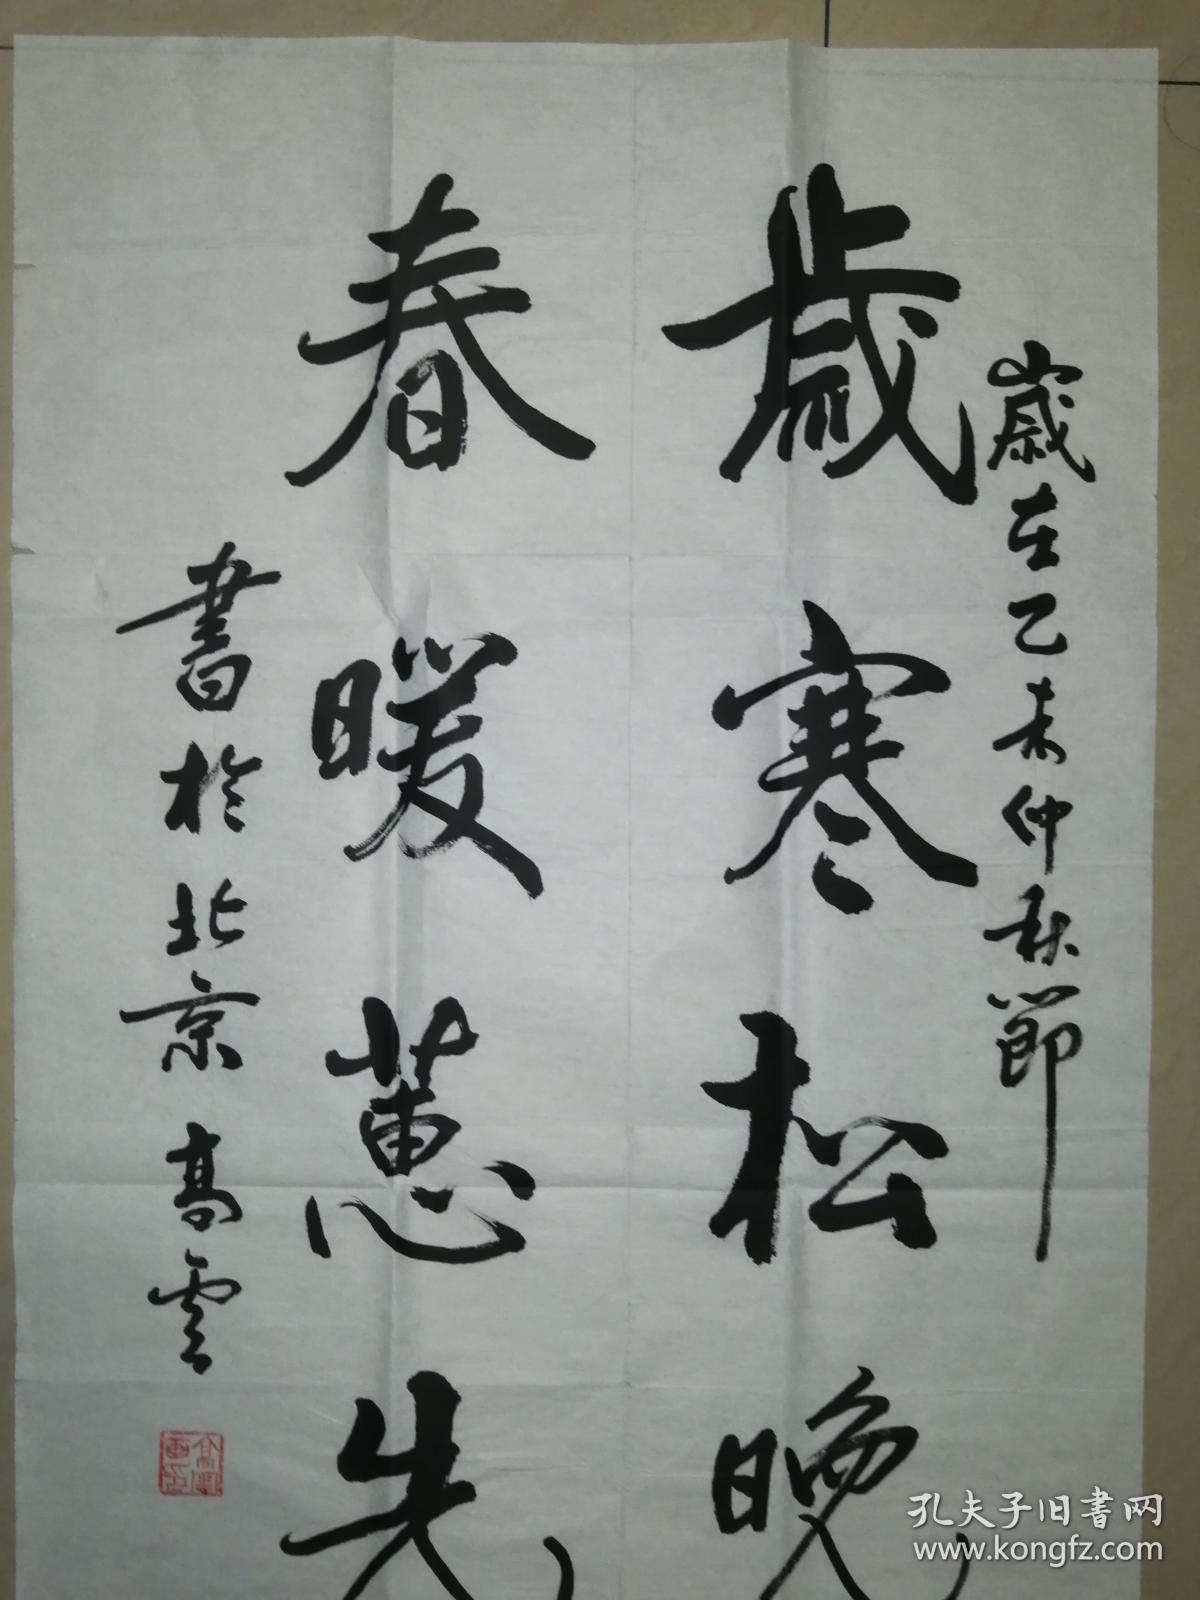 歲在乙未仲秋節
歲寒松晚
春暖蕙先
書於北京 高雲
孔夫子旧书网
www.kongfz.com